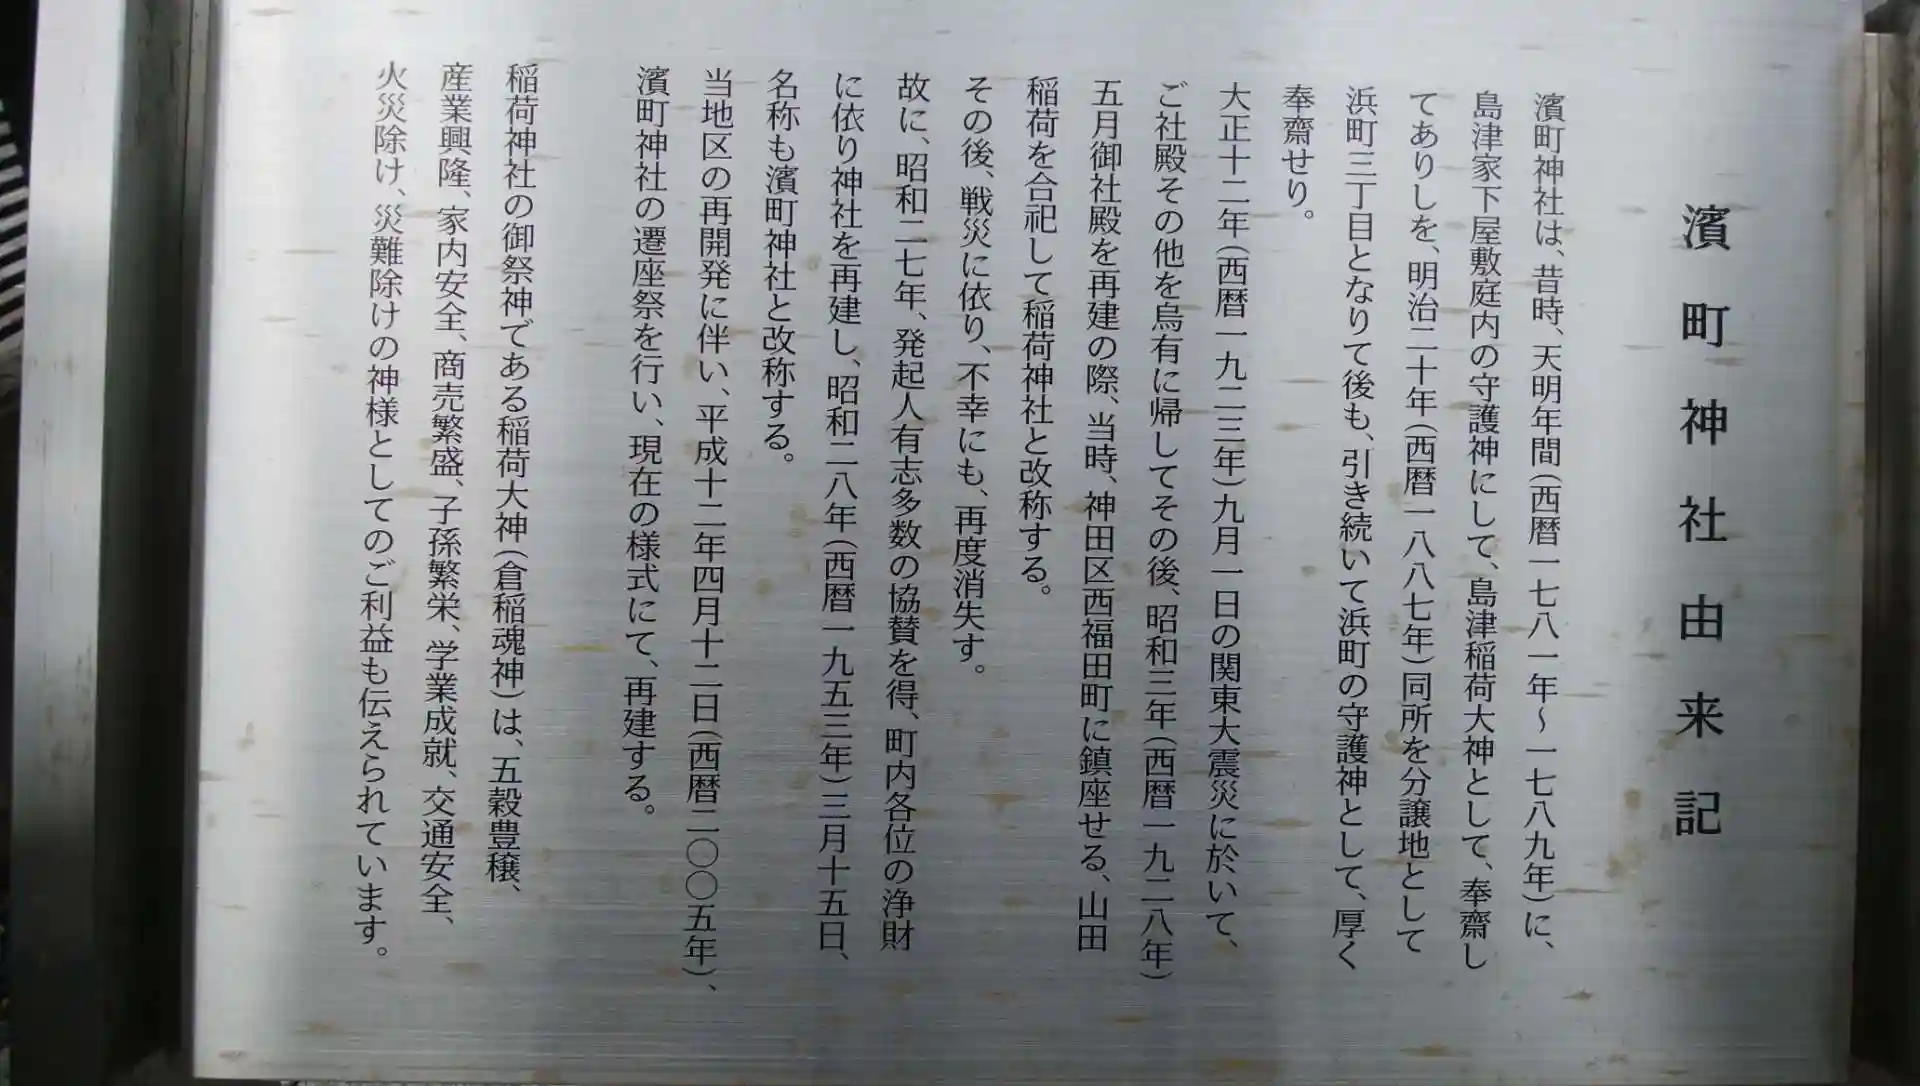 濱町神社由来記
濱町神社は、昔時、天明年間(西暦一七八一年〜一七八九年)に、
島津家下屋敷庭内の守護神にして、島津稲荷大神として、奉齋し
てありしを、明治二十年(西暦一八八七年)同所を分譲地として
浜町三丁目となりて後も、引き続いて浜町の守護神として、厚く
奉齋せり。
大正十二年(西暦一九二三年)九月一日の関東大震災に於いて、
ご社殿その他を烏有に帰してその後、昭和三年(西暦一九二八年)
五月御社殿を再建の際、当時、神田区西福田町に鎮座せる、山田
稲荷を合祀して稲荷神社と改称する。
その後、戦災に依り、不幸にも、再度消失す。
故に、昭和二七年、発起人有志多数の協賛を得、町内各位の浄財
に依り神社を再建し、昭和二八年(西暦一九五三年)三月十五日、
名称も濱町神社と改称する。
当地区の再開発に伴い、平成十二年四月十二日(西暦二〇〇五年)、
濱町神社の遷座祭を行い、現在の様式にて、再建する。
稲荷神社の御祭神である稲荷大神(倉稲魂神)は、五穀豊穣、
産業興隆、家内安全、商売繁盛、子孫繁栄、学業成就、交通安全、
火災除け、災難除けの神様としてのご利益も伝えられています。